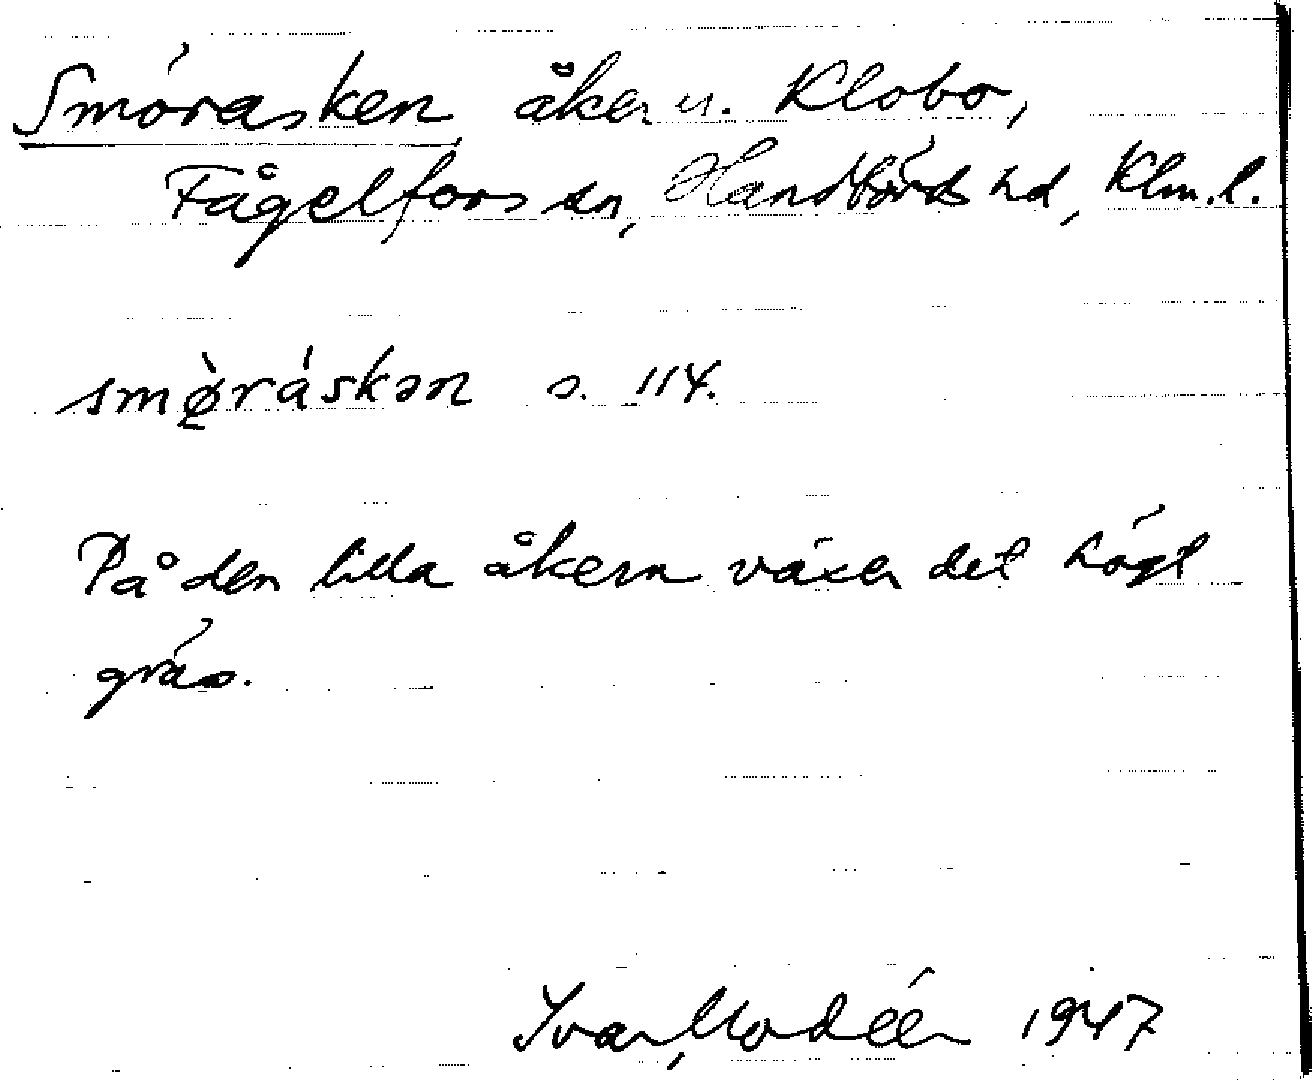 Smörasken åker u. Klobo,
Fågelfors sn, Handbörds hd, Klm.l.
smø̀ráskən s. 114.
På den lilla åkern växer det högt
gräs.
Ivar Modéer 1947